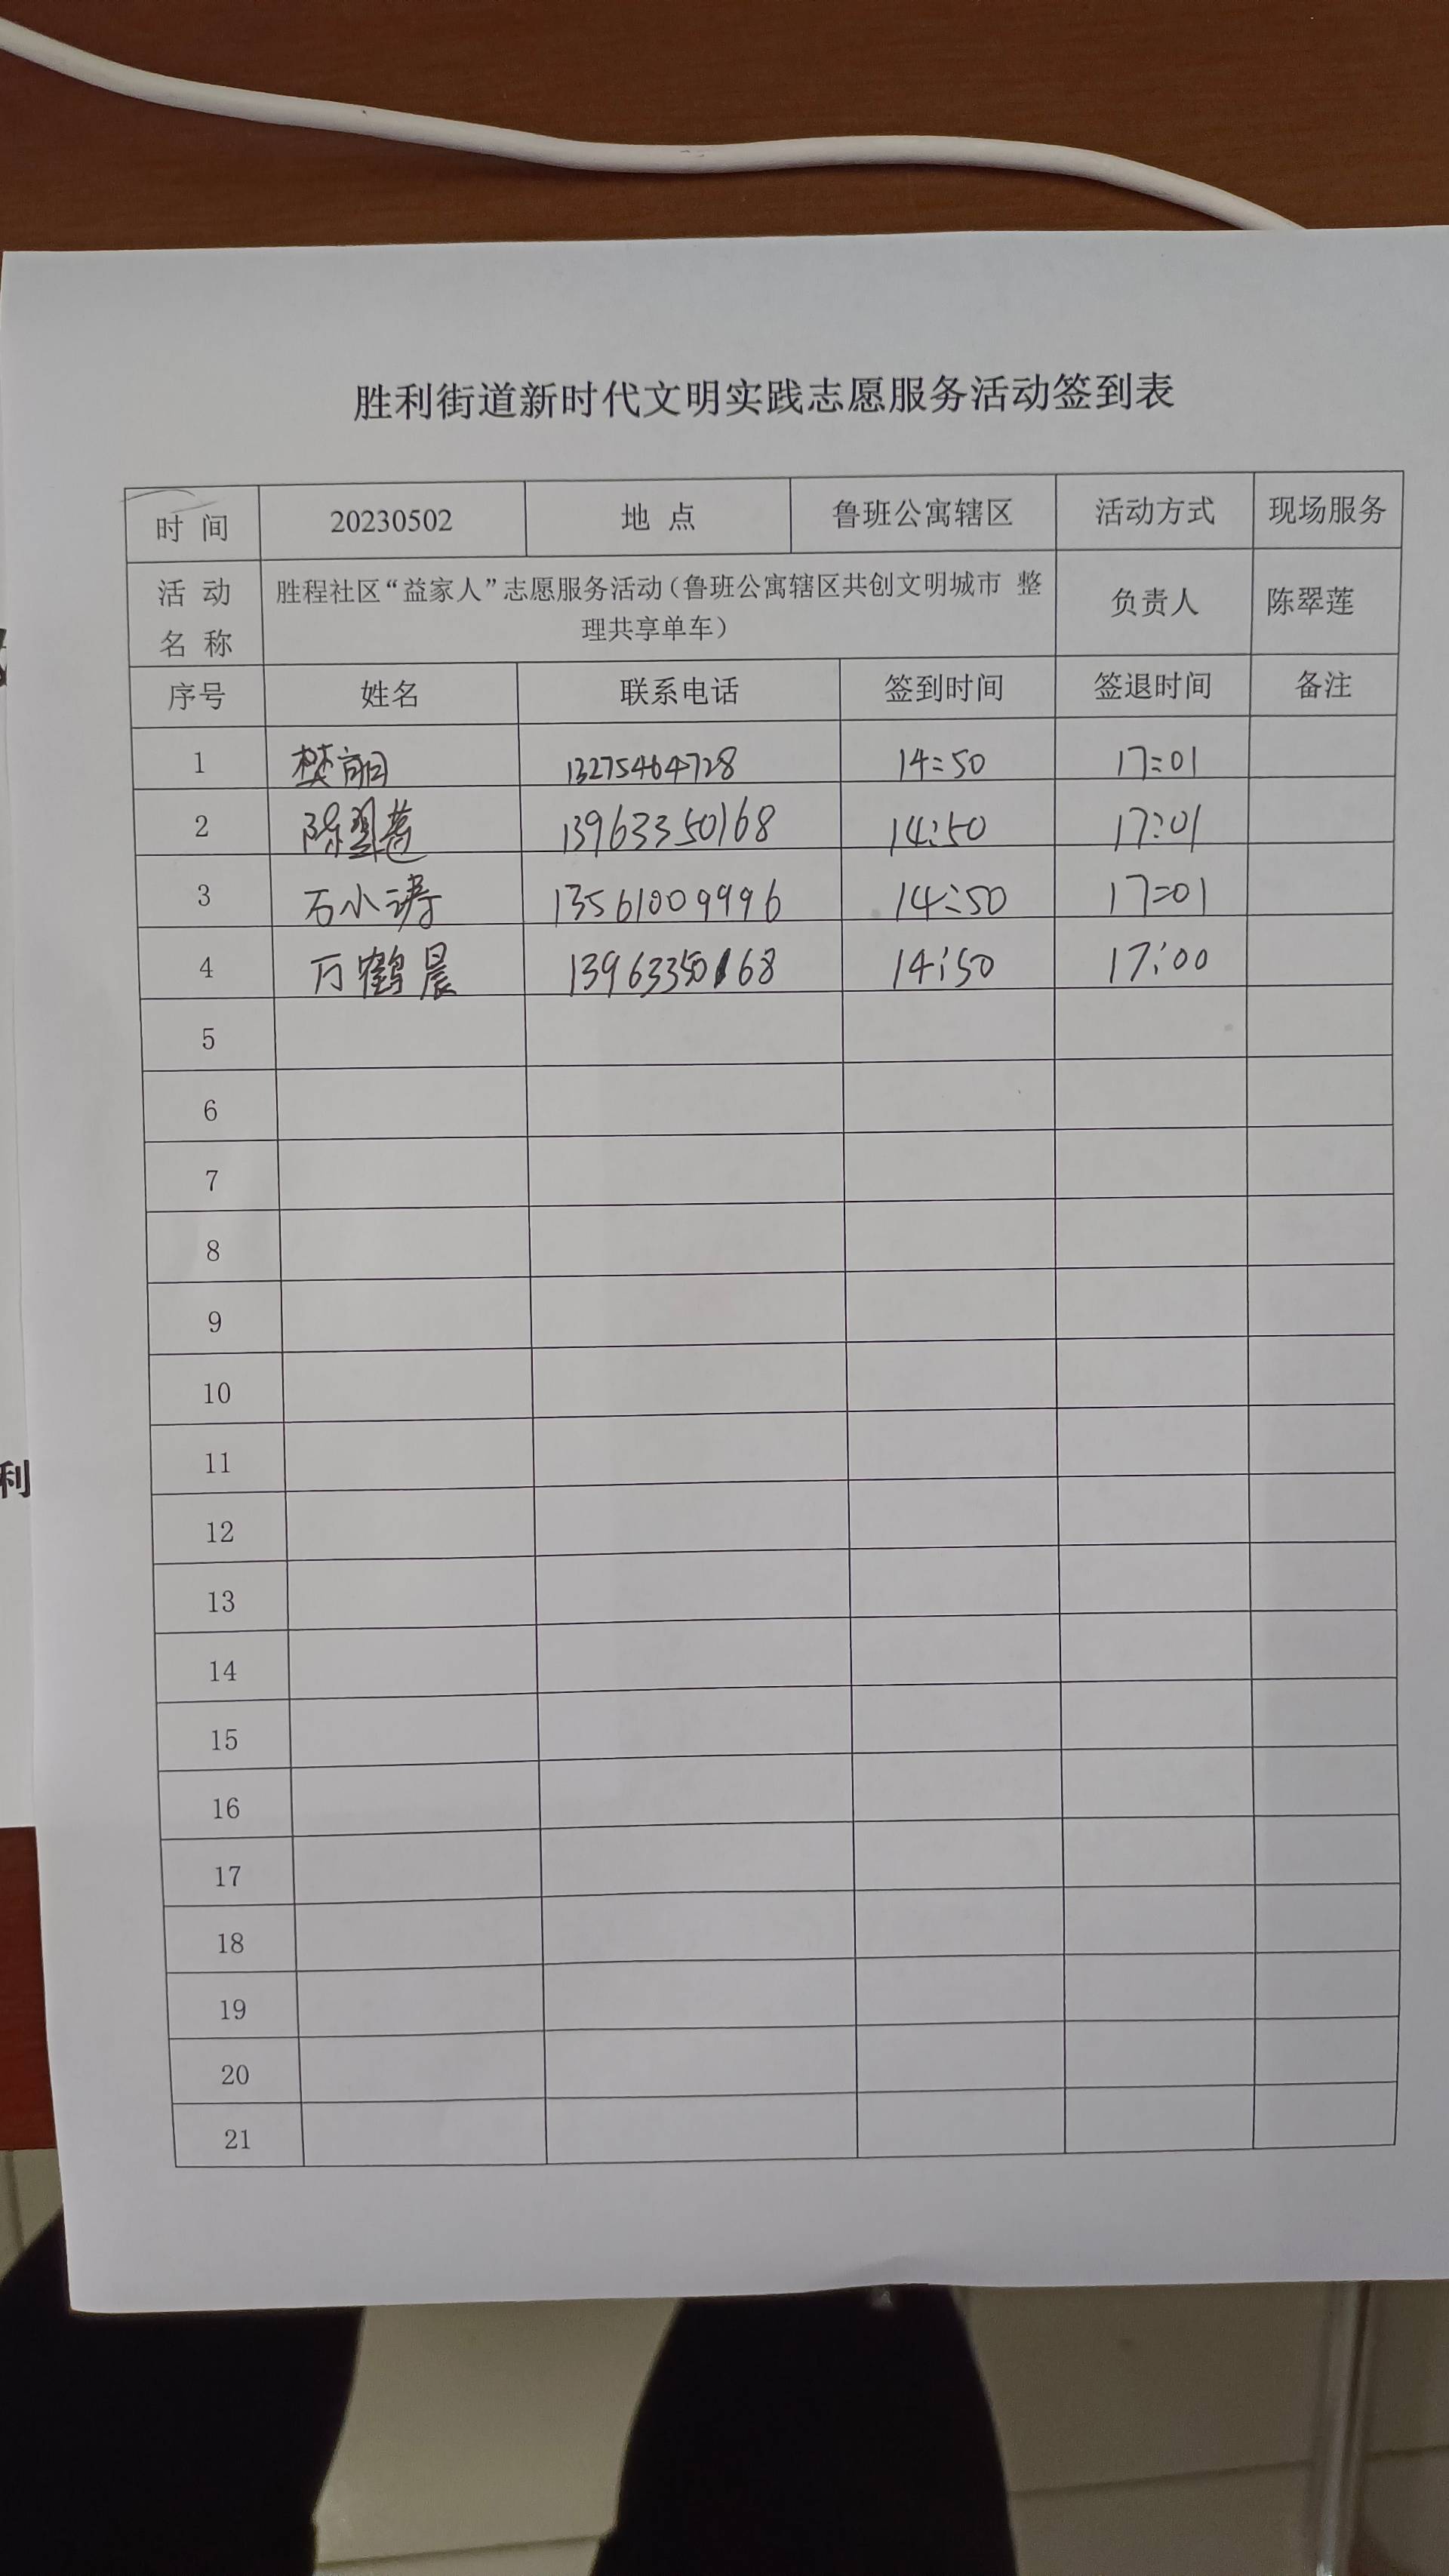 胜利街道新时代文明实践志愿服务活动签到表
时 间 20230502 地 点 鲁班公寓辖区 活动方式 现场服务
活 动 名 称 胜程社区“益家人”志愿服务活动（鲁班公寓辖区共创文明城市 整
理共享单车） 负责人 陈翠莲
序号 姓名 联系电话 签到时间 签退时间 备注
1 樊 13275464728 14:50 17:01
2 陈翠莲 13963350168 14:50 17:01
3 石小涛 13561009996 14:50 17:01
4 万鹤晨 13963350168 14:50 17:00
5
6
7
8
9
10
11
12
13
14
15
16
17
18
19
20
21
利